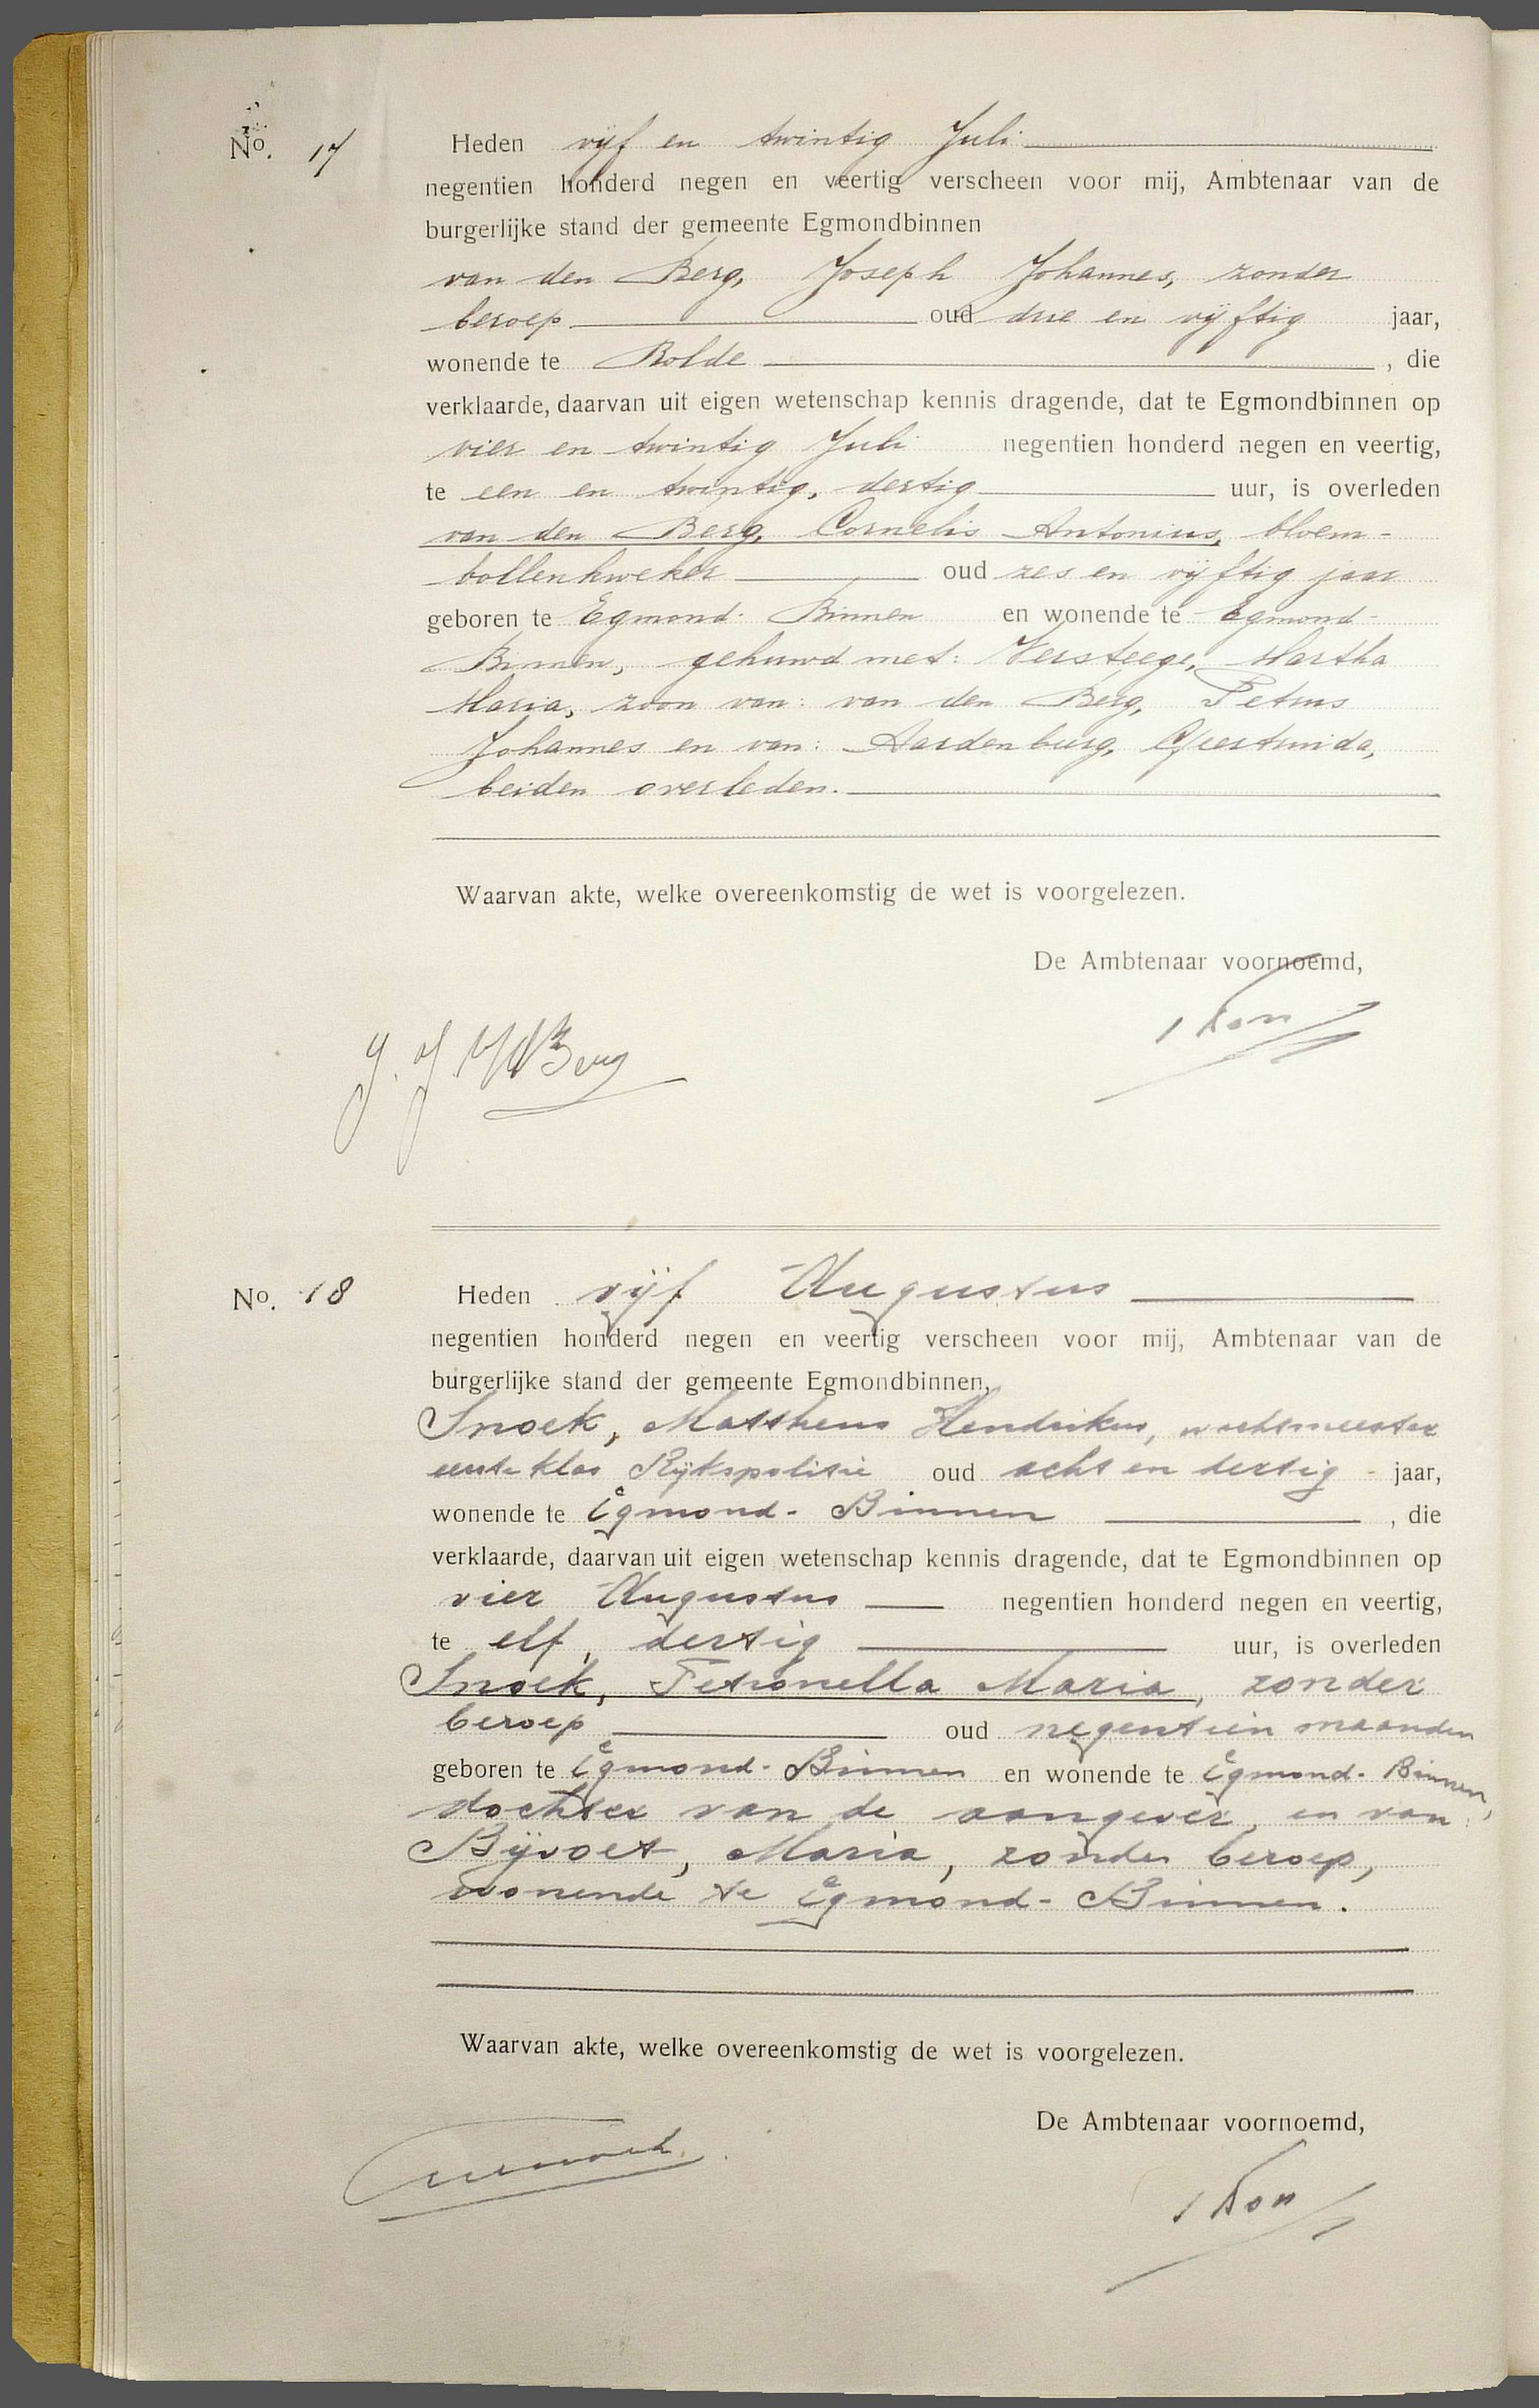 No. 17
Heden vijf en twintig Juli
negentien honderd negen en veertig verscheen voor mij, Ambtenaar van de
burgerlijke stand der gemeente Egmondbinnen
van den Berg, Joseph Johannes, zonder
beroep oud drie en vijftig jaar,
wonende te Rolde , die
verklaarde, daarvan uit eigen wetenschap kennis dragende, dat te Egmondbinnen op
vier en twintig Juli negentien honderd negen en veertig,
te een en twintig, dertig uur, is overleden
van den Berg, Cornelis Antonius, bloem-
bollenkweker oud zes en vijftig jaar
geboren te Egmond-Binnen en wonende te Egmond-
Binnen, gehuwd met: Versteege, Martha
Maria, zoon van: van den Berg, Petrus
Johannes en van: Aardenburg, Geertruida,
beiden overleden.
Waarvan akte, welke overeenkomstig de wet is voorgelezen.
De Ambtenaar voornoemd,
J. J. vd Berg
No. 18
Heden vijf Augustus
negentien honderd negen en veertig verscheen voor mij, Ambtenaar van de
burgerlijke stand der gemeente Egmondbinnen,
Snoek, Mattheus Hendrikus, wachtmeester
eerste klas Rijkspolitie oud acht en dertig - jaar,
wonende te Egmond-Binnen , die
verklaarde, daarvan uit eigen wetenschap kennis dragende, dat te Egmondbinnen op
vier Augustus negentien honderd negen en veertig,
te elf, dertig uur, is overleden
Snoek, Petronella Maria, zonder
beroep oud negentien maanden
geboren te Egmond-Binnen en wonende te Egmond-Binnen,
dochter van de aangever en van:
Bijvoet, Maria, zonder beroep,
wonende te Egmond-Binnen.
Waarvan akte, welke overeenkomstig de wet is voorgelezen.
De Ambtenaar voornoemd,